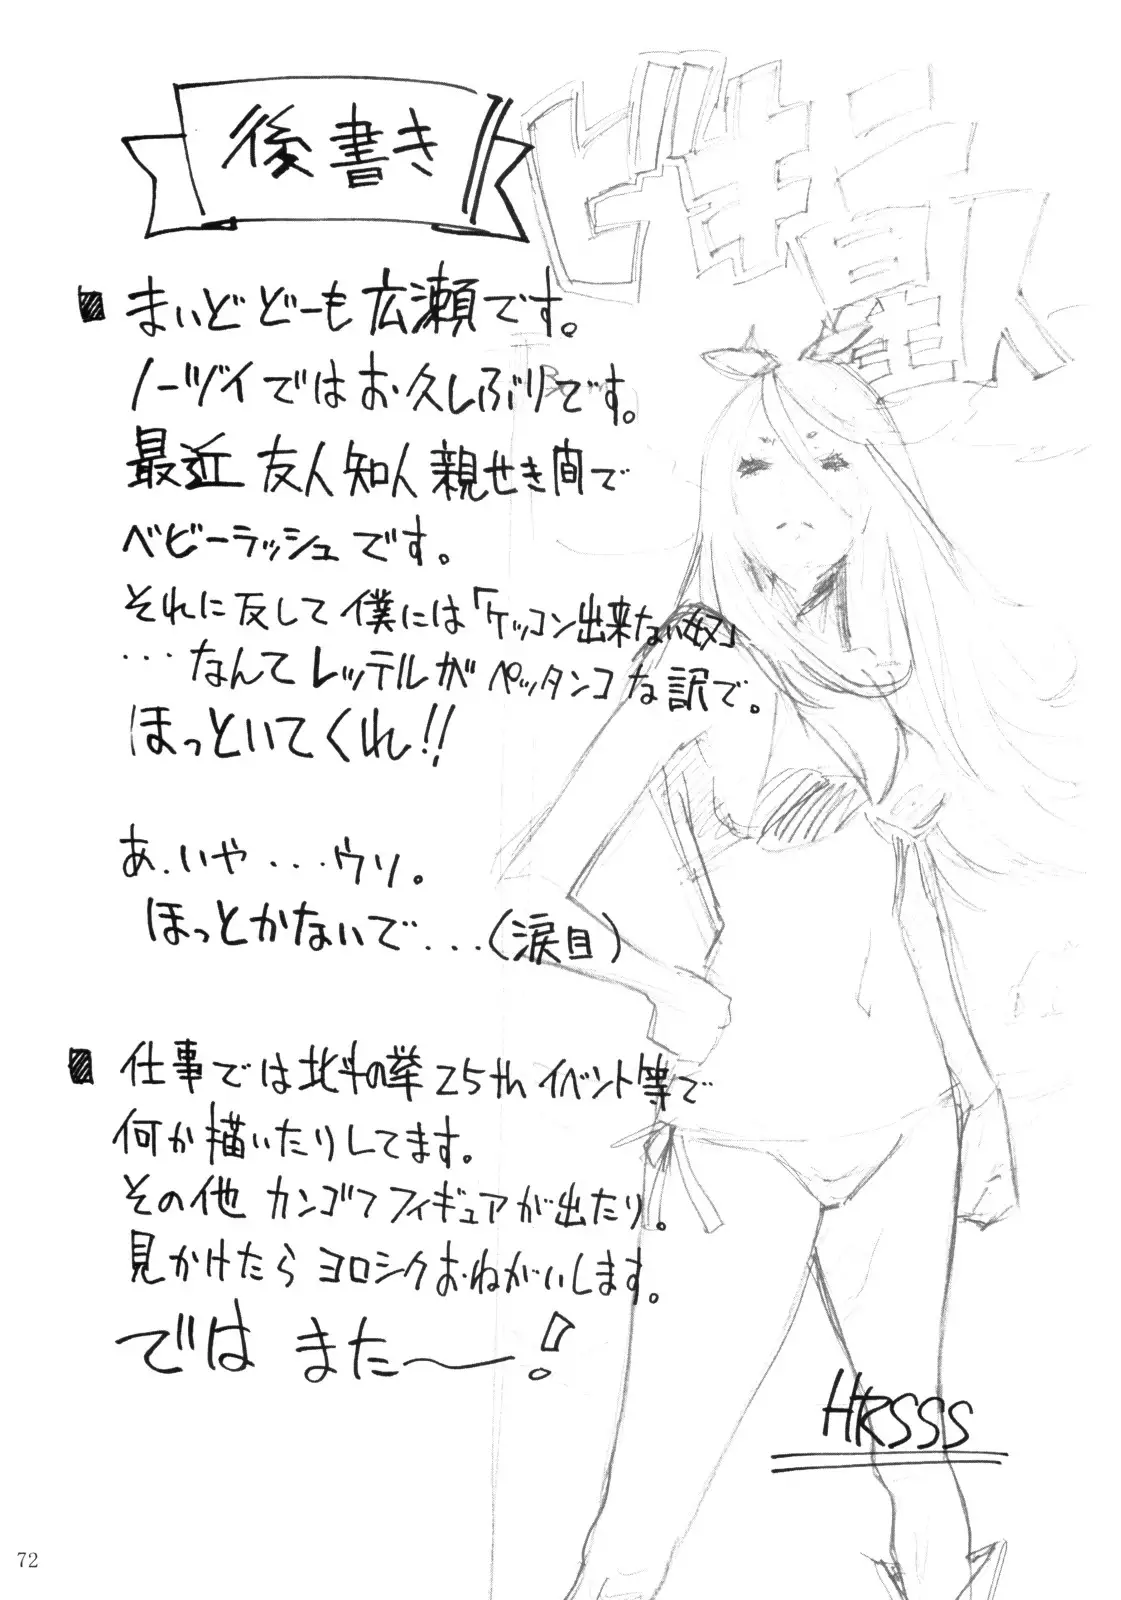 後書き
■ まいどどーも広瀬です。
ノーヅイではお久しぶりです。
最近 友人知人親せき間で
ベビーラッシュです。
それに反して僕には「ケッコン出来ない奴」
・・・なんてレッテルがペッタンコな訳で。
ほっといてくれ!!
あ、いや・・・ウソ。
ほっとかないで...(涙目)
■ 仕事では北斗の拳25thイベント等で
何か描いたりしてます。
その他 カンゴフフィギュアが出たり。
見かけたらヨロシクおねがいします。
では また〜!
HRSSS
72